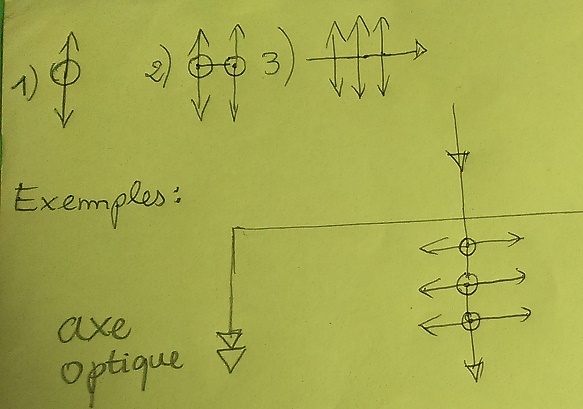 1) 2) 3)
Exemples:
axe
optique